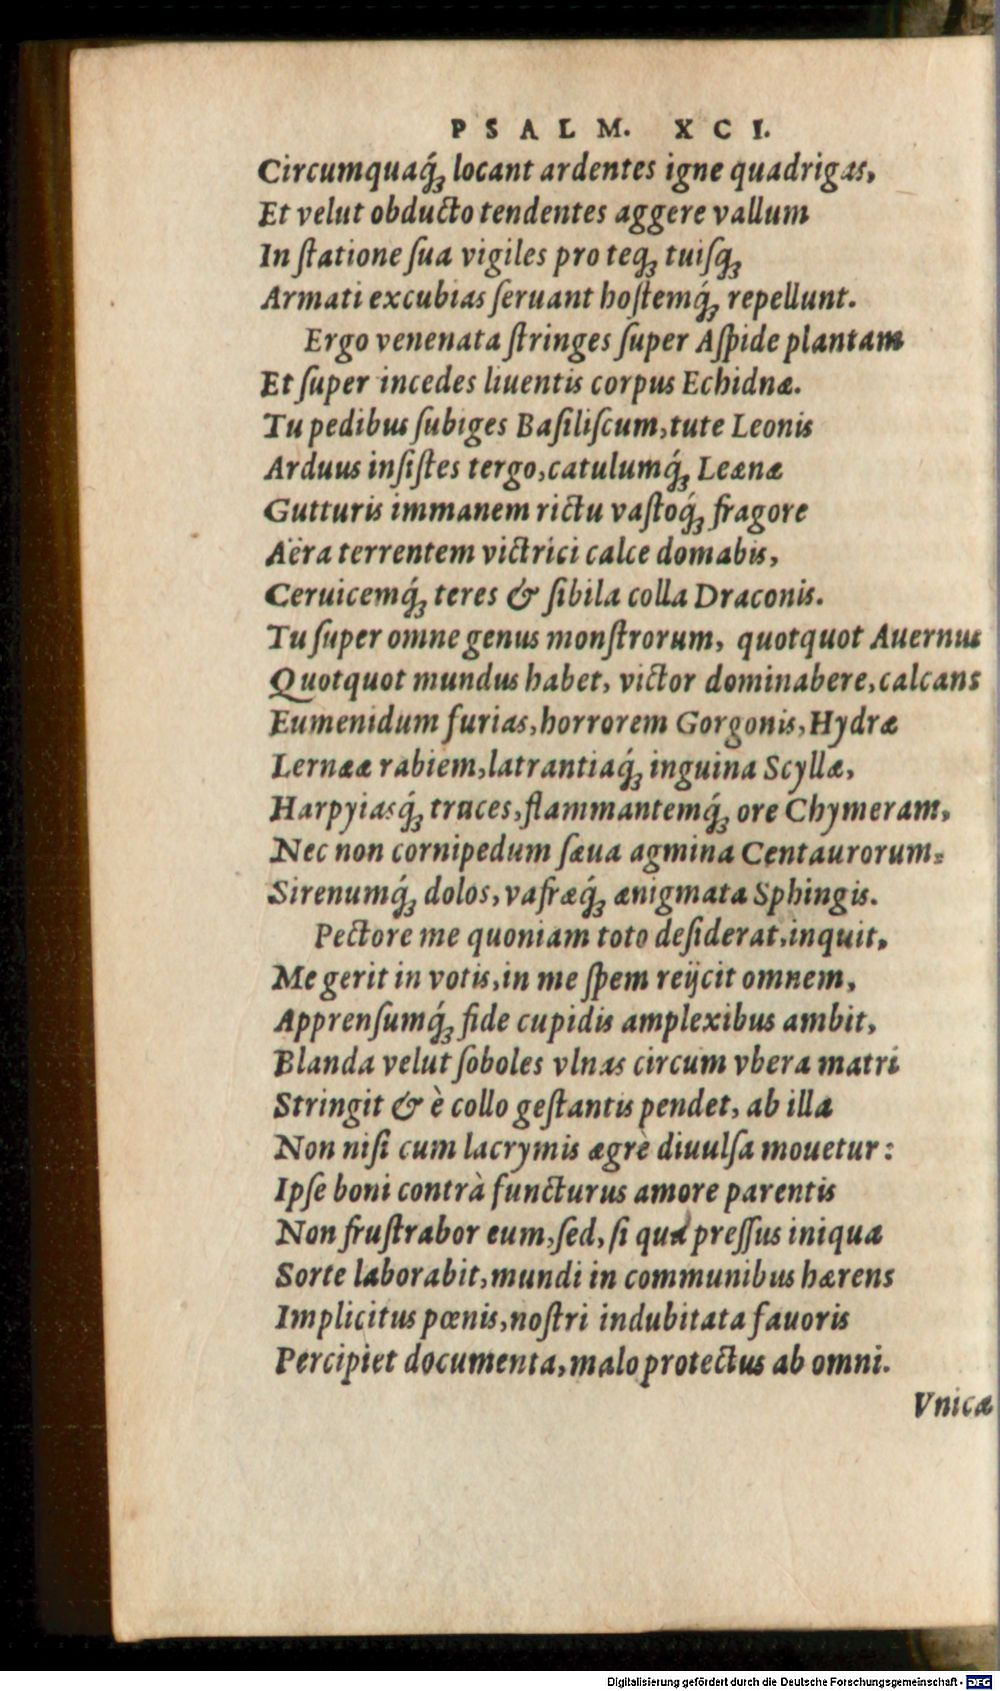 PSALM. XCI.
Circumquaq́ꝫ locant ardentes igne quadrigas,
Et velut obducto tendentes aggere vallum
In ſtatione ſua vigiles pro teqꝫ tuiſqꝫ
Armati excubias ſeruant hoſtemq́ꝫ repellunt.
Ergo venenata ſtringes ſuper Aſpide plantam
Et ſuper incedes liuentis corpus Echidnæ.
Tu pedibus ſubiges Baſiliſcum, tute Leonis
Arduus inſiſtes tergo, catulumq́ꝫ Leænæ
Gutturis immanem rictu vaſtoq́ꝫ fragore
Aëra terrentem victrici calce domabis,
Ceruicemq́ꝫ teres & ſibila colla Draconis.
Tu ſuper omne genus monſtrorum, quotquot Auernus
Quotquot mundus habet, victor dominabere, calcans
Eumenidum furias, horrorem Gorgonis, Hydræ
Lernææ rabiem, latrantiaq́ꝫ inguina Scyllæ,
Harpyiasq́ꝫ truces, flammantemq́ꝫ ore Chymeram,
Nec non cornipedum ſæua agmina Centaurorum,
Sirenumq́ꝫ dolos, vafræq́ꝫ ænigmata Sphingis.
Pectore me quoniam toto deſiderat, inquit,
Me gerit in votis, in me ſpem reijcit omnem,
Apprenſumq́ꝫ fide cupidis amplexibus ambit,
Blanda velut ſoboles vlnas circum vbera matri
Stringit & è collo geſtantis pendet, ab illa
Non niſi cum lacrymis ægrè diuulſa mouetur:
Ipſe boni contrà functurus amore parentis
Non fruſtrabor eum, ſed, ſi qua preſſus iniqua
Sorte laborabit, mundi in communibus hærens
Implicitus pœnis, noſtri indubitata fauoris
Percipiet documenta, malo protectus ab omni.
Vnicæ
Digitalisierung gefördert durch die Deutsche Forschungsgemeinschaft - DFG